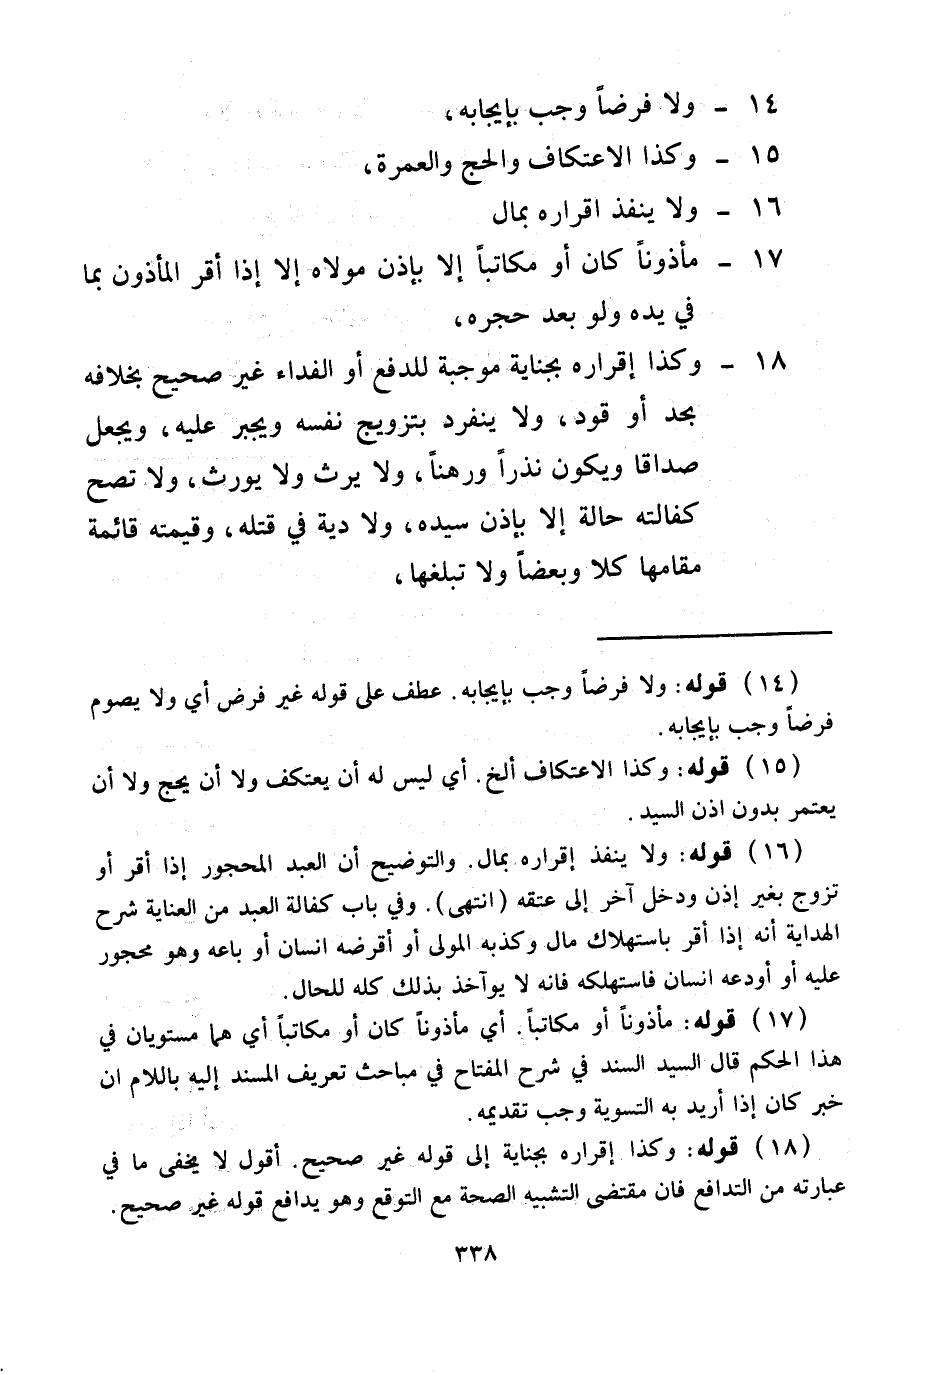 ١٤ - ولا فرضاً وجب بإيجابه،
١٥ - وكذا الاعتكاف والحج والعمرة،
١٦ - ولا ينفذ اقراره بمال
١٧ - مأذوناً كان أو مكاتباً إلا بإذن مولاه إلا إذا أقر المأذون بما
في يده ولو بعد حجره،
١٨ - وكذا إقراره بجناية موجبة للدفع أو الفداء غير صحيح بخلافه
بحد أو قود، ولا ينفرد بتزويج نفسه ويجبر عليه، ويجعل
صداقا ويكون نذراً ورهناً، ولا يرث ولا يورث، ولا تصح
كفالته حالة إلا بإذن سيده، ولا دية في قتله، وقيمته قائمة
مقامها كلا وبعضاً ولا تبلغها،
(١٤) قوله: ولا فرضاً وجب بإيجابه. عطف على قوله غير فرض أي ولا يصوم
فرضاً وجب بإيجابه.
(١٥) قوله: وكذا الاعتكاف ألخ. أي ليس له أن يعتكف ولا أن يحج ولا أن
يعتمر بدون اذن السيد.
(١٦) قوله: ولا ينفذ إقراره بمال. والتوضيح أن العبد المحجور إذا أقر أو
تزوج بغير إذن ودخل آخر إلى عتقه (انتهى). وفي باب كفالة العبد من العناية شرح
الهداية أنه إذا أقر باستهلاك مال وكذبه المولى أو أقرضه انسان أو باعه وهو محجور
عليه أو أودعه انسان فاستهلكه فانه لا يوآخذ بذلك كله للحال.
(١٧) قوله: مأذوناً أو مكاتباً. أي مأذوناً كان أو مكاتباً أي هما مستويان في
هذا الحكم قال السيد السند في شرح المفتاح في مباحث تعريف المسند إليه باللام ان
خبر كان إذا أريد به التسوية وجب تقديمه.
(١٨) قوله: وكذا إقراره بجناية إلى قوله غير صحيح. أقول لا يخفى ما في
عبارته من التدافع فان مقتضى التشبيه الصحة مع التوقع وهو يدافع قوله غير صحيح.
٣٣٨